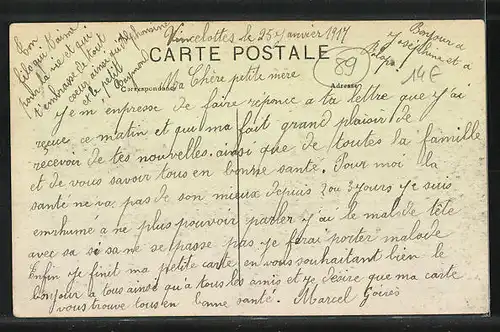 Vincelottes le 25 Janvier 1917
CARTE POSTALE
Correspondance
Adresse
89
14€
Bonjour a
Joséphine et a
Ton
filo qui t'aime
pour la vie et qui
t'embrasse de tout
coeur ainsi que Joséphine
et le petit
Raymond
Ma Chère petite mère
Je m'enpresse de faire réponce a ta lettre que j'ai
reçue ce matin et qui ma fait grand plaisir de
recevoir de tes nouvelles. ainsi que de toutes la famille
et de vous savoir tous en bonne santé. Pour moi la
santé ne va pas de son mieux depuis 2 ou 3 jours je suis
enrhumé a ne plus pouvoir parler j'ai le mal de tête
avec sa si sa ne se passe pas je ferai porter malade
Enfin je finit ma petite carte en vous souhaitant bien le
bonjour a tous ainsi qu'a tous les amis et je désire que ma carte
vous trouve tous en bonne santé. Marcel